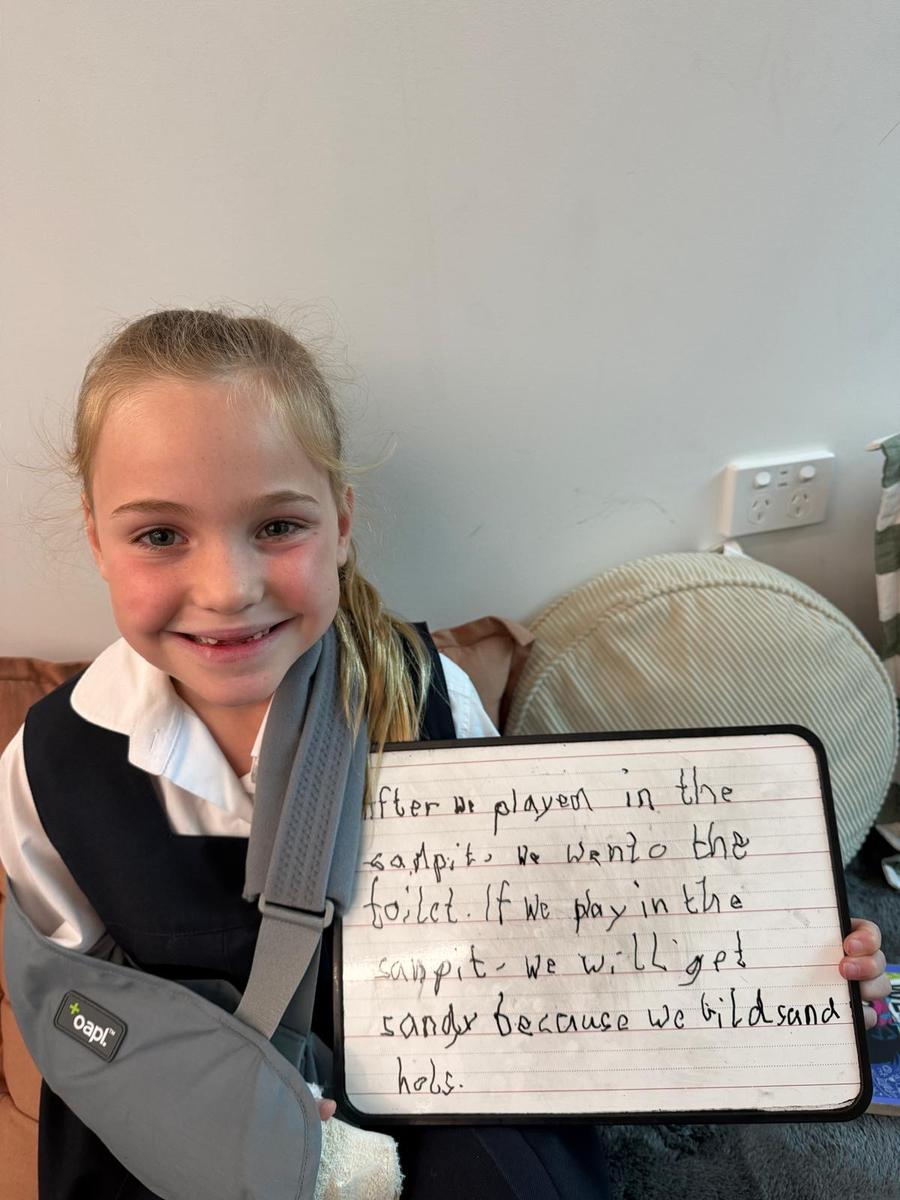 After we played in the
sandpit, we went to the
toilet. If we play in the
sanpit, we will get
sandy because we bild sand
hols.
+oapl™